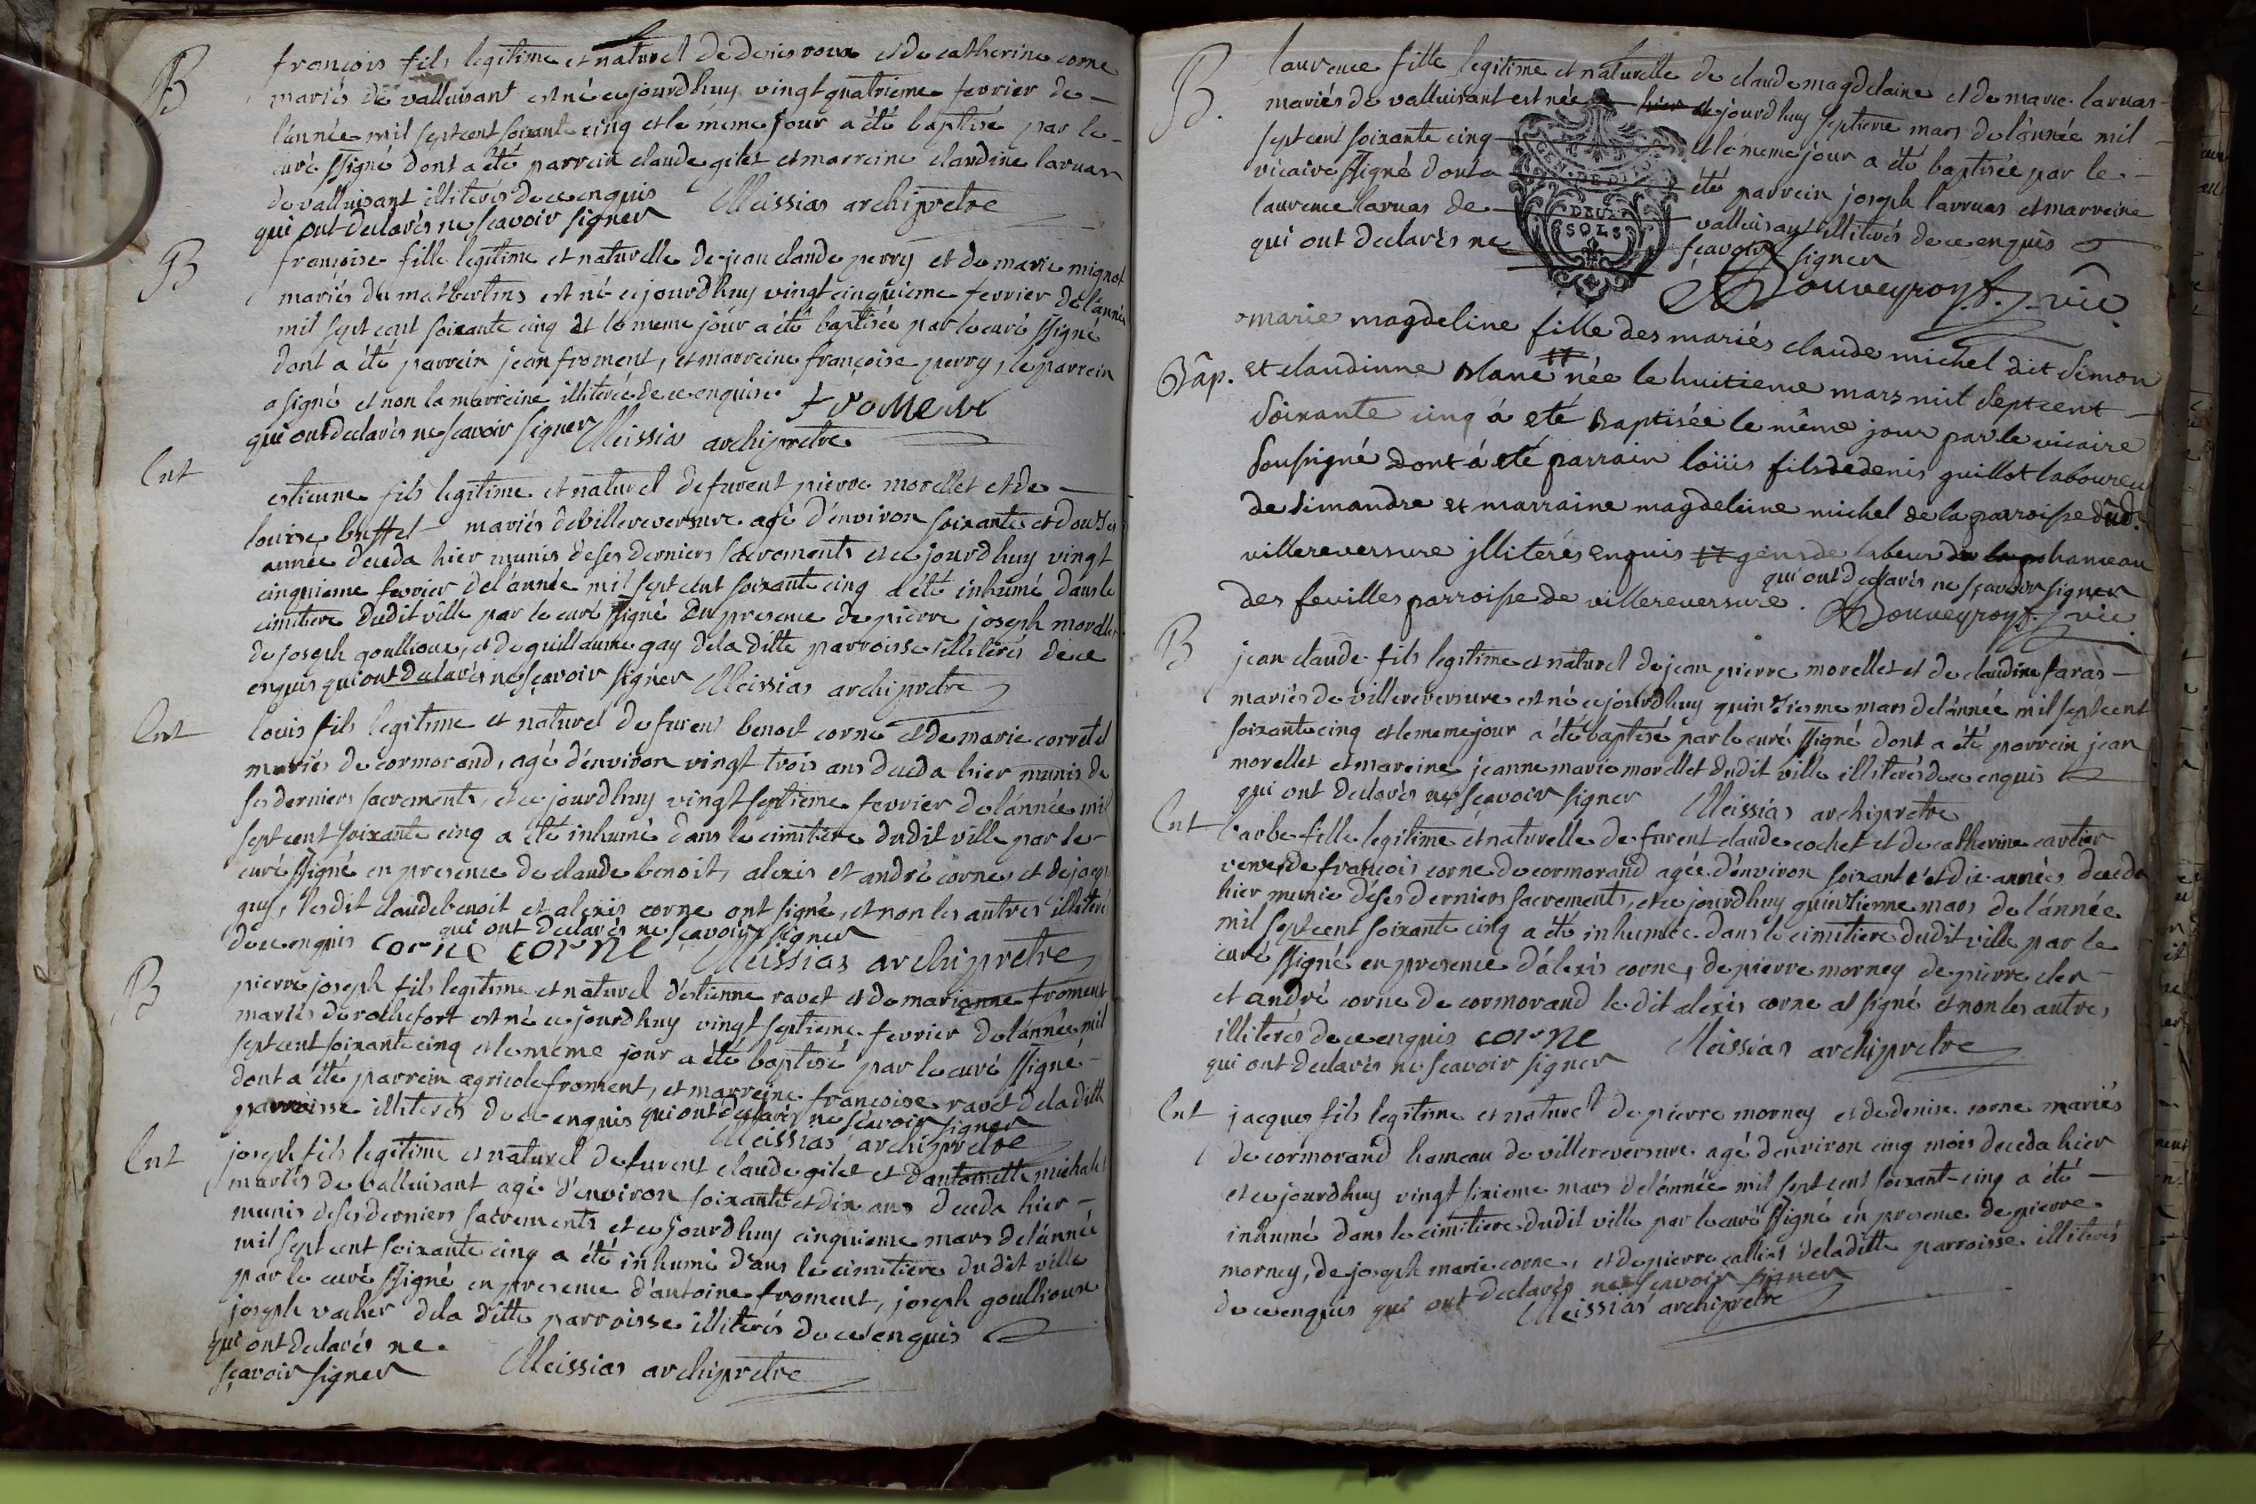 B françois fils legitime et naturel de denis roux et de catherine corne
mariés de valluisant est né cejourdhuy vingt quatrieme fevrier de
l'année mil sept cent soixante cinq et le meme jour a été baptisé par le
curé ssigné dont a été parrein claude gilet et marreine claudine laruas
de valluisant illiterés de ce enquis
qui ont declarés ne sçavoir signer Meissias archipretre
B françoise fille legitime et naturelle de jean claude perry et de marie mignot
mariés du est né cejourdhuy vingt cinquieme fevrier de l'année
mil sept cent soixante cinq et le meme jour a été baptisée par le curé ssigné
dont a été parrein jean froment, et marreine françoise perry, le parrein
a signé et non la marreine illiterée de ce enquise froment
qui ont declarés ne sçavoir signer Meissias archipretre
Ent estienne fils legitime et naturel de furent pierre morellet et de
louise buffet mariés de villereversure agé d'environ soixante et douze
année deceda hier munis de ses derniers sacrements et ce jourdhuy vingt
cinquieme fevrier de l'année mil sept cent soixante cinq a été inhumé dans le
cimitiere dudit ville par le curé ssigné en presence de pierre joseph morellet
de joseph goullioux, et de guillaume gay de la ditte parroisse illiterés de ce
enquis qui ont declarés ne sçavoir signer Meissias archipretre
Ent louis fils legitime et naturel de furent benoit corne et de marie corretel
mariés de cormorand, agé d'environ vingt trois ans deceda hier munis de
ses derniers sacrements, et ce jourdhuy vingt septieme fevrier de l'année mil
sept cent soixante cinq a été inhumé dans le cimitiere dudit ville par le
curé ssigné en presence de claude benoit, alexis et andré corne et de
guy, lesdit claude benoit et alexis corne ont signé, et non les autres illiterés
qui ont declarés ne sçavoir signer
de ce enquis corne corne Meissias archipretre
B pierre joseph fils legitime et naturel d'estienne ravet et de marianne froment
mariés de rochefort est né ce jourdhuy vingt septieme fevrier de l'année mil
sept cent soixante cinq et le meme jour a été baptisé par le curé ssigné
dont a été parrein agricole froment, et marreine françoise ravet de la ditte
parroisse illiterés de ce enquis qui ont declarés ne sçavoir signer
Meissias archipretre
Ent joseph fils legitime et naturel de furent claude gilet et d'antoinette michalet
mariés de valluisant agé d'environ soixante et dix ans deceda hier
munis de ses derniers sacrements et ce jourdhuy cinquieme mars de l'année
mil sept cent soixante cinq a été inhumé dans le cimitiere dudit ville
par le curé ssigné en presence d'antoine froment, joseph goullioux
joseph vacher de la ditte parroisse illiterés de ce enquis
qui ont declarés ne
sçavoir signer Meissias archipretre
B. laurence fille legitime et naturelle de claude magdelaine et de marie laruas
mariés de valluisant est née hier cejourdhuy septieme mars de l'année mil
sept cent soixante cinq et le meme jour a été baptisée par le
vicaire ssigné dont a été parrein joseph larruas et marreine
laurence laruas de valluisant illiterés de ce enquis
qui ont declarés ne sçavoir signer
GEN. DE DIJON
DEUX
SOLS
Bouveyron vic
marie magdeline fille des mariés claude michel dit Simon
Bâp. et claudinne Blanc # née le huitieme mars mil septcent
soixante cinq á eté Baptisée le même jour par le vicaire
soussigné dont á eté parrain loüis fils de denis guillot laboureur
de simandre et marraine magdeleine michel de la parroisse dud.
villereversure jlliterés enquis # gens de labeur hameau
qui ont declarés ne sçavoir signer
des feuilles parroisse de villereversure. Bouveyron vic
B jean claude fils legitime et naturel de jean pierre morellet et de claudine faras
mariés de villereversure est né ce jourdhuy quinzieme mars de l'année mil septcent
soixante cinq et le meme jour a été baptisé par le curé ssigné dont a été parrein jean
morellet et mareine jeanne marie morellet dudit ville illiterés de ce enquis
qui ont declarés ne sçavoir signer Meissias archipretre
Ent barbe fille legitime et naturelle de furent claude cochet et de catherine cartier
veuve de françois corne de cormorand agée d'environ soixante et dix années deceda
hier munie de ses derniers sacrements, et ce jourdhuy quinzieme mars de l'année
mil sept cent soixante cinq a été inhumée dans le cimitiere dudit ville par le
curé ssigné en presence d'alexis corne, de pierre morney de pierre cler
et andré corne de cormorand le dit alexis corne at signé et non les autres
illiterés de ce enquis corne Meissias archipretre
qui ont declarés ne sçavoir signer
Ent jacques fils legitime et naturel de pierre morney et de denise corne mariés
de cormorand hameau de villereversure agé d'environ cinq mois deceda hier
et ce jourdhuy vingt sixieme mars de l'année mil sept cent soixante cinq a été
inhumé dans le cimitiere dudit ville par le curé ssigné en presence de pierre
morney, de joseph marie corne, et de pierre de la ditte parroisse illiterés
de ce enquis qui ont declarés ne sçavoir signer
Meissias archipretre